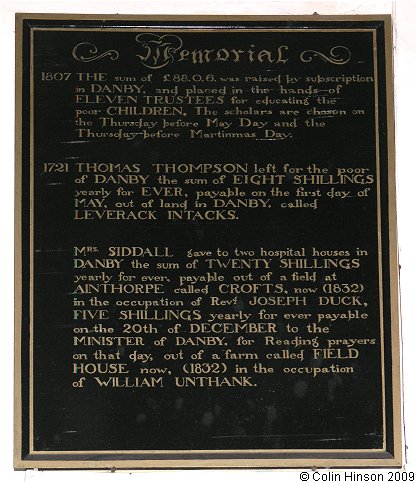 Memorial
1807 THE sum of £88.0.6. was raised by subscription
in DANBY, and placed in the hands of
ELEVEN TRUSTEES for educating the
poor CHILDREN. The scholars are chosen on
the Thursday before May Day and the
Thursday before Martinmas Day.
1721 THOMAS THOMPSON left for the poor
of DANBY the sum of EIGHT SHILLINGS
yearly for EVER, payable on the first day of
MAY, out of land in DANBY, called
LEVERACK INTACKS.
MRS. SIDDALL gave to two hospital houses in
DANBY the sum of TWENTY SHILLINGS
yearly for ever, payable out of a field at
AINTHORPE called CROFTS, now (1832)
in the occupation of Revd. JOSEPH DUCK,
FIVE SHILLINGS yearly for ever payable
on the 20th of DECEMBER to the
MINISTER of DANBY, for Reading prayers
on that day, out of a farm called FIELD
HOUSE now, (1832) in the occupation
of WILLIAM UNTHANK.
© Colin Hinson 2009